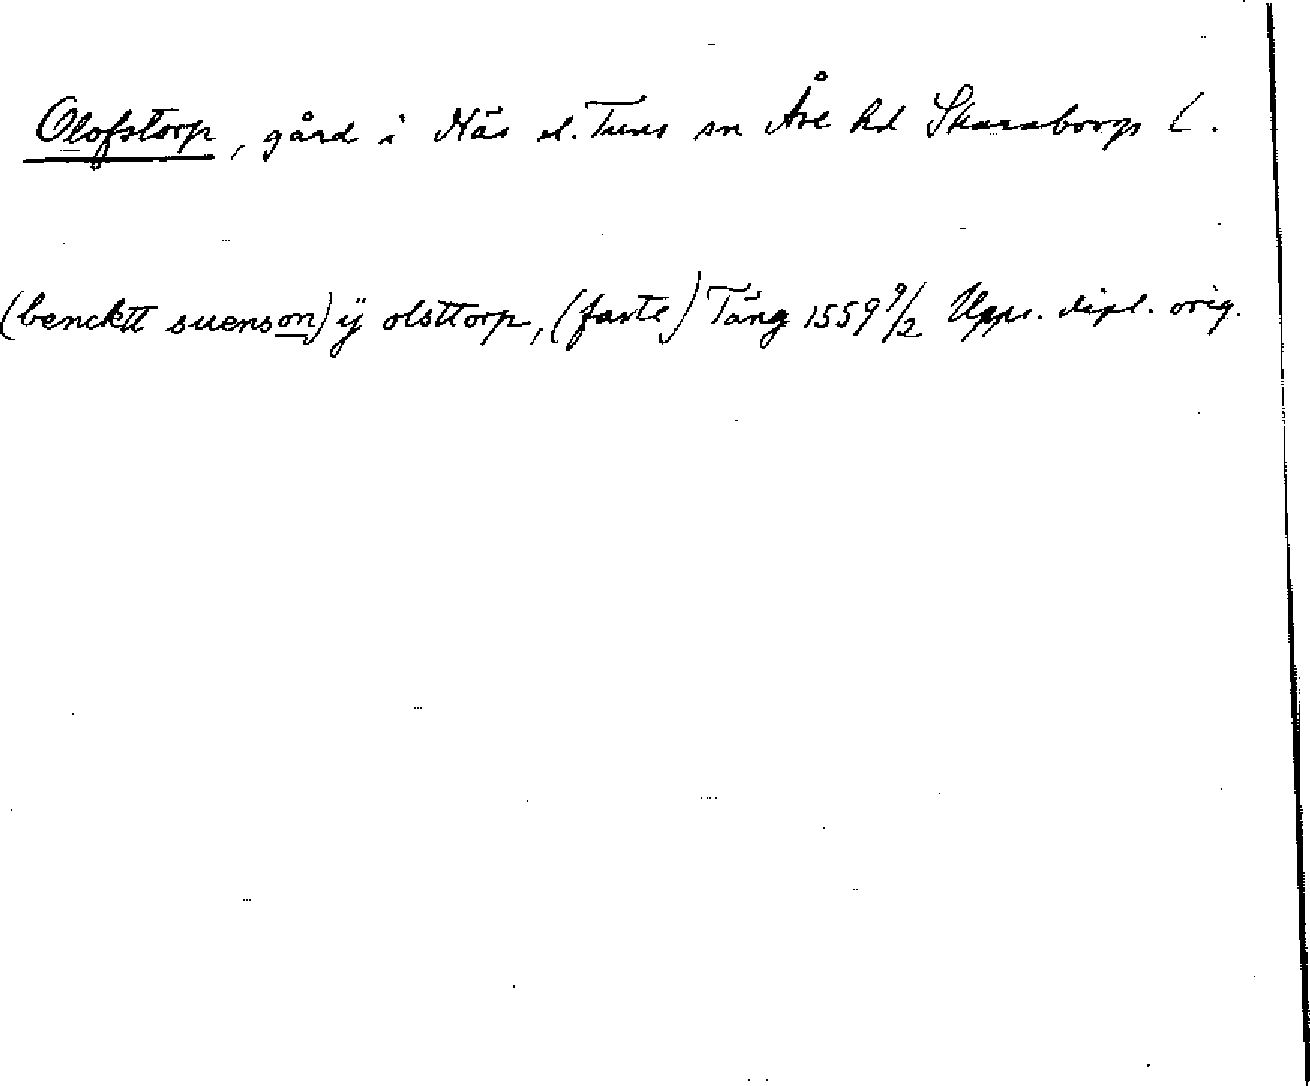 Olofstorp, gård i Näs el. Tuns sn Åse hd Skaraborgs L.
(bencktt suenson) ÿ olsttorp, (faste) Täng 1559 9/2 Upps. dipl. orig.